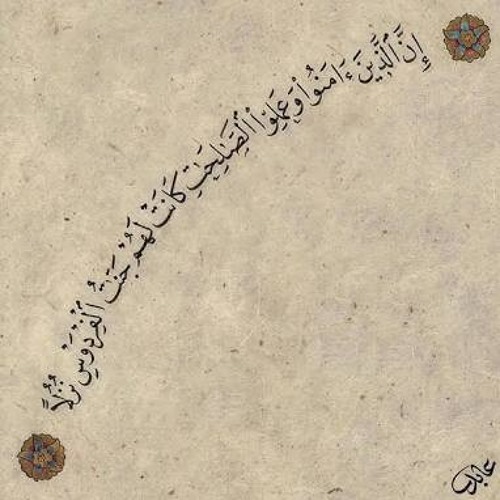 إِنَّ ٱلَّذِينَ ءَامَنُوا۟ وَعَمِلُوا۟ ٱلصَّـٰلِحَـٰتِ كَانَتْ لَهُمْ جَنَّـٰتُ ٱلْفِرْدَوْسِ نُزُلًا